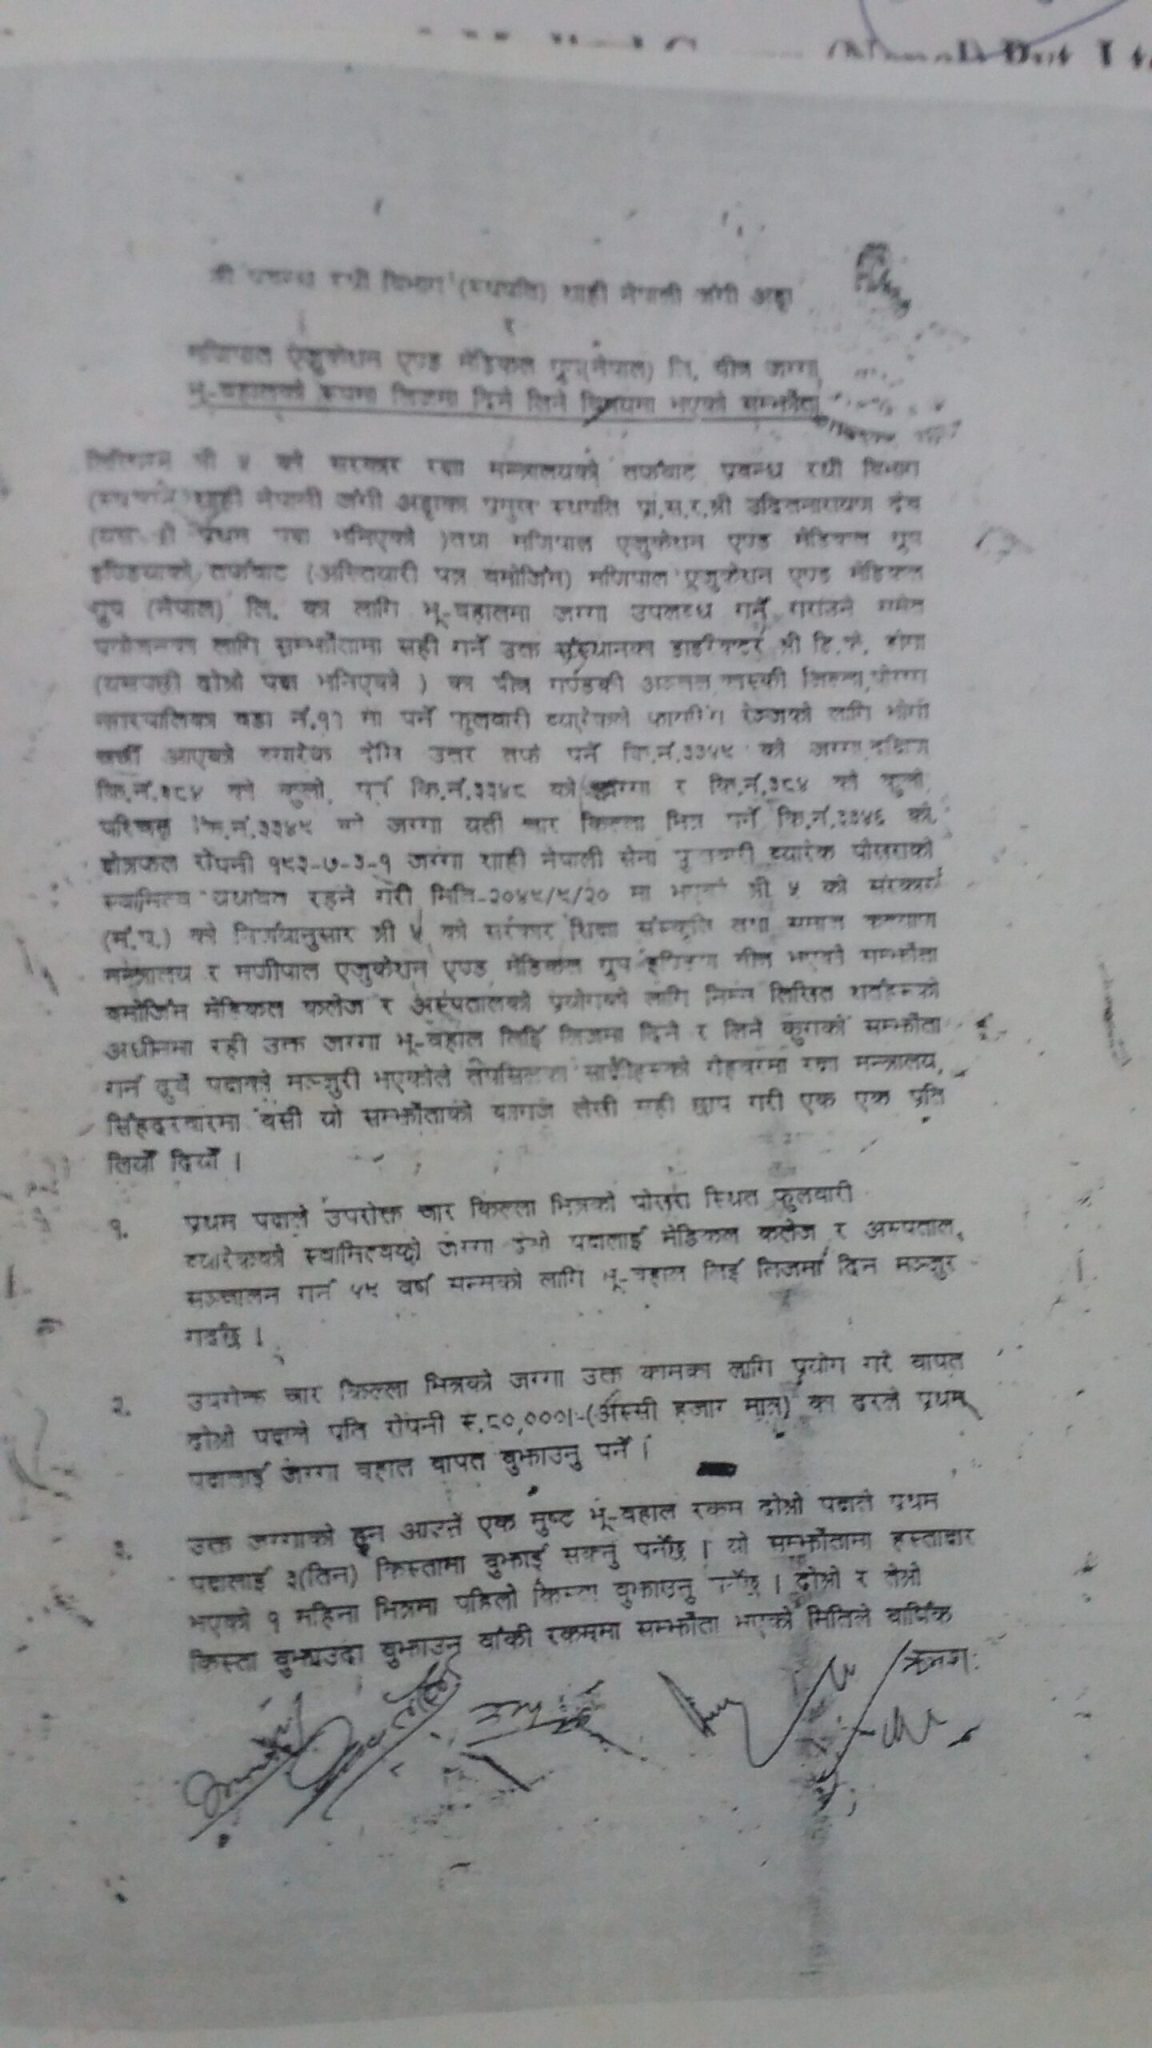 श्री प्रबन्ध रथी विभाग (स्थपति) शाही नेपाली जंगी अड्डा
र
मणिपाल एजुकेशन एण्ड मेडिकल ग्रुप(नेपाल) लि. बीच जग्गा
भू-बहालको रूपमा लिजमा दिने लिने बिषयमा भएको सम्झौता
श्री ५ को सरकार रक्षा मन्त्रालयको तर्फबाट प्रबन्ध रथी विभाग
शाही नेपाली जंगी अड्डाका प्रमुख स्थपति प्रा.स.र.श्री उदितनारायण देव
प्रथम पक्ष भनिएको )तथा मणिपाल एजुकेशन एण्ड मेडिकल ग्रुप
इण्डियाको तर्फबाट (अख्तियारी पत्र बमोजिम) मणिपाल एजुकेशन एण्ड मेडिकल
ग्रुप (नेपाल) लि. का लागि भू-बहालमा जग्गा उपलब्ध गर्ने गराउने समेत
प्रयोजनका लागि सम्झौतामा सही गर्ने उक्त संस्थानका डाइरेक्टर श्री
(यसपछी दोश्रो पक्ष भनिएको ) का बीच गण्डकी अञ्चल कास्की जिल्ला पोखरा
नगरपालिका वडा नं.११ मा पर्ने फूलबारी ब्यारेकको फायरिंग रेञ्जको लागि भोगी
चर्ची आएको ब्यारेक देखि उत्तर तर्फ पर्ने कि.नं.३३४९ को जग्गा दक्षिण
कि.नं.३८४ को कुलो, पूर्व कि.नं.३३४८ को जग्गा र कि.नं.३८४ को कुलो,
पश्चिम कि.नं.३३४५ को जग्गा यती चार किल्ला भित्र पर्ने कि.नं.३३४६ को
क्षेत्रफल रोपनी १९३-७-३-१ जग्गा शाही नेपाली सेना फूलबारी ब्यारेक पोखराको
स्वामित्व यथावत रहने गरी मिति-२०४९/९/२० मा भएको श्री ५ को सरकार
(मं.प.) को निर्णयानुसार श्री ५ को सरकार शिक्षा संस्कृति तथा समाज कल्याण
मन्त्रालय र मणीपाल एजुकेशन एण्ड मेडिकल ग्रुप इण्डिया बीच भएको सम्झौता
बमोजिम मेडिकल कलेज र अस्पतालको प्रयोगको लागि निम्न लिखित शर्तहरूको
अधीनमा रही उक्त जग्गा भू-बहाल लिई लिजमा दिने र लिने कुराको सम्झौता
गर्न दुवै पक्षको मञ्जुरी भएकोले तपसिलका साक्षीहरूको रोहवरमा रक्षा मन्त्रालय,
सिंहदरबारमा बसी यो सम्झौताको कागज लेखी सही छाप गरी एक एक प्रति
लियौं दियौं ।
१. प्रथम पक्षले उपरोक्त चार किल्ला भित्रको पोखरा स्थित फुलबारी
ब्यारेकको स्वामित्वको जग्गा दोश्रो पक्षलाई मेडिकल कलेज र अस्पताल
सञ्चालन गर्न ५९ वर्ष सम्मको लागि भू-बहाल लिई लिजमा दिन मञ्जुर
गर्दछ ।
२. उपरोक्त चार किल्ला भित्रको जग्गा उक्त कामका लागि प्रयोग गरे बापत
दोश्रो पक्षले प्रति रोपनी रु.८०,०००।-(अस्सी हजार मात्र) का दरले प्रथम
पक्षलाई जग्गा बहाल बापत बुझाउनु पर्ने ।
३. उक्त जग्गाको हुन आउने एक मुष्ट भू-बहाल रकम दोश्रो पक्षले प्रथम
पक्षलाई ३(तिन) किस्तामा बुझाई सक्नु पर्नेछ । यो सम्झौतामा हस्ताक्षर
भएको १ महिना भित्रमा पहिलो किस्ता बुझाउनु पर्नेछ । दोश्रो र तेश्रो
किस्ता बुझाउदा बुझाउन बाँकी रकममा सम्झौता भएको मितिले वार्षिक
क्रमश: